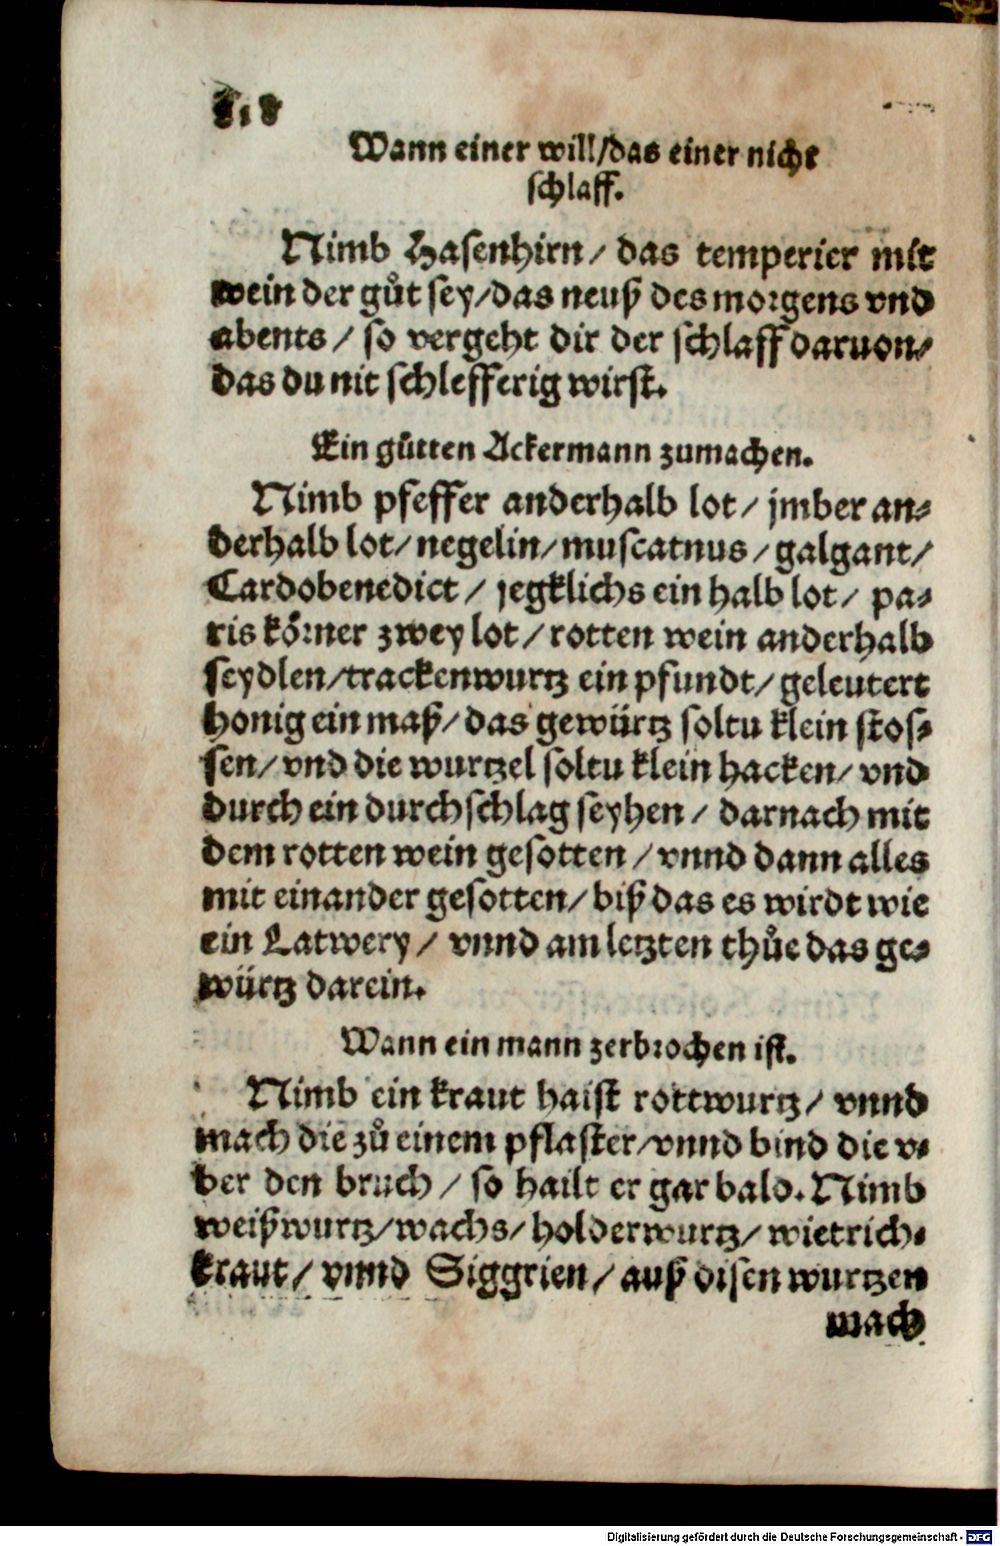 Wann einer will/das einer nicht
schlaff.
Nimb Hasenhirn/ das temperier mit
wein der gůt sey/das neuß des morgens vnd
abents/ so vergeht dir der schlaff daruon/
das du nit schlefferig wirst.
Ein gůtten Ackermann zumachen.
Nimb pfeffer anderhalb lot/ jmber an⸗
derhalb lot/ negelin/ muscatnus/ galgant/
Cardobenedict/ jegklichs ein halb lot/ pa⸗
ris koͤrner zwey lot/ rotten wein anderhalb
seydlen/trackenwurtz ein pfundt/ geleutert
honig ein maß/ das gewürtz soltu klein stos⸗
sen/ vnd die wurtzel soltu klein hacken/ vnd
durch ein durchschlag seyhen/ darnach mit
dem rotten wein gesotten/ vnnd dann alles
mit einander gesotten/ biß das es wirdt wie
ein Latwery/ vnnd am letzten thůe das ge⸗
würtz darein.
Wann ein mann zerbrochen ist.
Nimb ein kraut haist rottwurtz/ vnnd
mach die zů einem pflaster/vnnd bind die v⸗
ber den bruch/ so hailt er gar bald. Nimb
weißwurtz/wachs/ holderwurtz/ wietrich⸗
kraut/ vnnd Siggrien/ auß disen wurtzen
mach
Digitalisierung gefördert durch die Deutsche Forschungsgemeinschaft - DFG